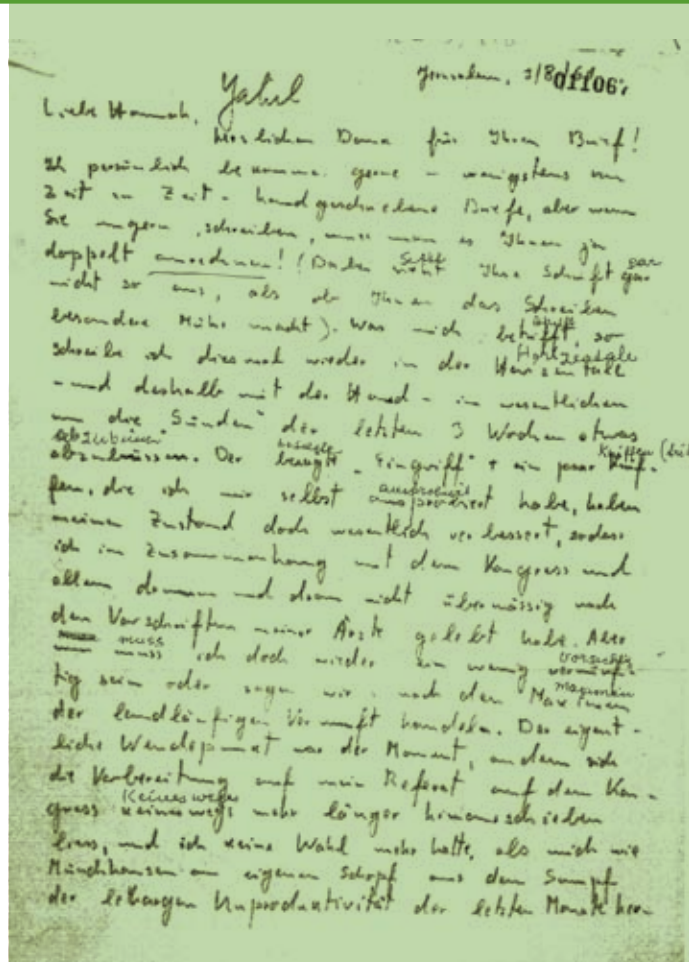 Jerusalem, 3/8/
011067
Liebe Hannah,
herzlichen Dank für Ihren Brief!
Ich persönlich bekomme gerne - wenigstens von
Zeit zu Zeit - handgeschriebene Briefe, aber wenn
Sie ungern schreiben, muss man es Ihnen ja
doppelt anrechnen! (Dabei sieht Ihre Schrift gar
nicht so aus, als ob Ihnen das Schreiben
besondere Mühe macht). Was mich betrifft, so
schreibe ich diesmal wieder in der Horizontale
- und deshalb mit der Hand - im wesentlichen
um die "Sünden" der letzten 3 Wochen etwas
abzubüssen. Der "Eingriff" + ein paar
die ich mir selbst habe, haben
meinen Zustand doch wesentlich verbessert, sodass
ich im Zusammenhang mit dem Kongress und
allem drumm und drann nicht übermässig nach
den Vorschriften meiner Ärzte gelebt habe. Aber
muss ich doch wieder ein wenig
tig sein oder sagen wir - nach den Maximen
der landläufigen Vernunft handeln. Der eigent-
liche Wendepunkt war der Moment, an dem sich
die Vorbereitung auf mein Referat auf dem Kon-
gress keineswegs mehr länger hinausschieben
liess, und ich keine Wahl mehr hatte, als mich wie
Münchhausen am eigenen Schopf aus dem Sumpf
der Unproduktivität der letzten Monate